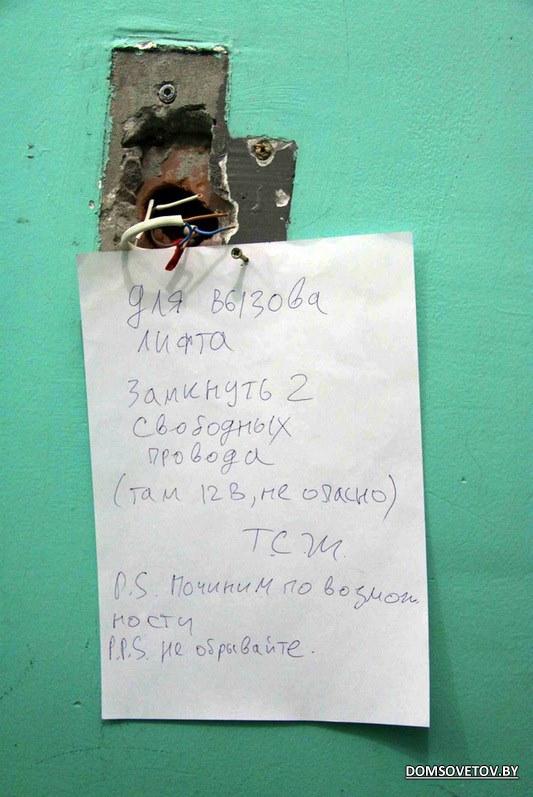 для вызова
лифта
замкнуть 2
свободных
провода
(там 12В, не опасно)
Т.С.Ж.
P.S. Починим по возмож
ности
P.P.S. не обрывайте.
DOMSOVETOV.BY